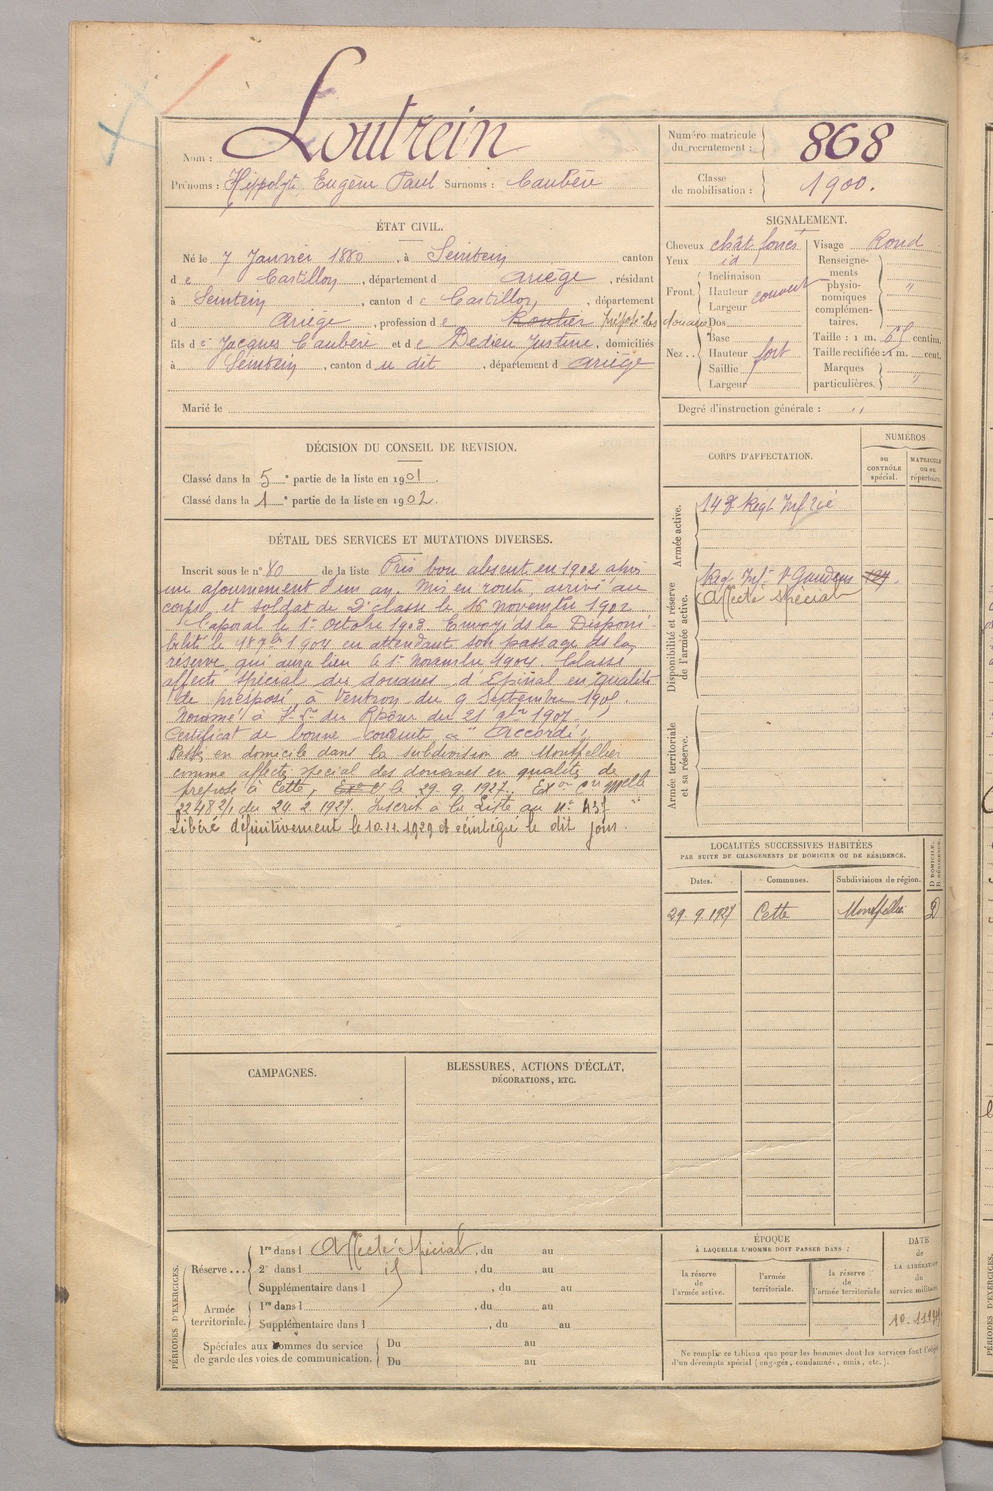 Nom : Loutrein
Prénoms : Hippolyte Eugène Paul Surnoms : Caubère
Numéro matricule du recrutement : 868
Classe de mobilisation : 1900.
ÉTAT CIVIL.
Né le 7 Janvier 1880, à Seintein canton
de Castillon, département d Ariège, résidant
à Seintein, canton de Castillon, département
d Ariège, profession de Routier préposé des douanes
fils de Jacques Caubère et de Dedieu Justine, domiciliés
à Seintein, canton du dit, département d Ariège
Marié le
SIGNALEMENT.
Cheveux chât foncés
Yeux id
Front. Inclinaison
Hauteur couvert
Largeur
Nez . . Dos
Base
Hauteur fort
Saillie
Largeur
Visage Rond
Renseignements physionomiques complémentaires. "
Taille : 1 m. 65 centim.
Taille rectifiée : 1 m. cent.
Marques particulières. "
Degré d'instruction générale : "
DÉCISION DU CONSEIL DE REVISION.
Classé dans la 5e partie de la liste en 1901.
Classé dans la 1e partie de la liste en 1902.
CORPS D'AFFECTATION.
NUMÉROS
au CONTRÔLE spécial.
MATRICULE ou au répertoire.
Armée active.
143e Regt Infrie
Disponibilité et réserve de l'armée active.
Regt Infie St Gaudens 127.
Affecté spécial
Armée territoriale et sa réserve.
DÉTAIL DES SERVICES ET MUTATIONS DIVERSES.
Inscrit sous le n° 80 de la liste Pris bon absent en 1902 après
un ajournement d'un an. Mis en route, arrivé au
corps et soldat de 2e classe le 16 novembre 1902
Caporal le 1er Octobre 1903. Envoyé ds la Disponi-
bilité le 18 7bre 1904 en attendant son passage ds la
réserve qui aura lieu le 1er Novembre 1904. Classé
affecté spécial des douanes d'Epinal en qualité
de préposé à Ventron du 9 Septembre 190
Nommé à du 21 1907.
Certificat de bonne conduite "Accordé".
Passé en domicile dans la subdivision de Montpellier
comme affecté spécial des douanes en qualité de
préposé à Cette, le 29.9.1927. Exon
22482/1 du 24.2.1927. Inscrit à la Liste au n°
Libéré définitivement le 10.11.1929 et réintégré le dit jour.
LOCALITÉS SUCCESSIVES HABITÉES
PAR SUITE DE CHANGEMENTS DE DOMICILE OU DE RÉSIDENCE.
Dates. Communes. Subdivisions de région. D DOMICILE. R RÉSIDENCE.
29.9.1927 Cette Montpellier D
CAMPAGNES.
BLESSURES, ACTIONS D'ÉCLAT,
DÉCORATIONS, ETC.
PÉRIODES D'EXERCICES.
Réserve . . . 1re dans l Affecté Spécial, du au
2e dans l id, du au
Supplémentaire dans l , du au
Armée territoriale. 1re dans l , du au
Supplémentaire dans l , du au
Spéciales aux hommes du service de garde des voies de communication. Du au
Du au
ÉPOQUE
À LAQUELLE L'HOMME DOIT PASSER DANS :
la réserve de l'armée active.
l'armée territoriale.
la réserve de l'armée territoriale
DATE de LA LIBÉRATION du service militaire.
10.11.1929
Ne remplir ce tableau que pour les hommes dont les services font l'objet
d'un décompte spécial (engagés, condamnés, omis, etc.).
PÉRIODES D'EXERCICES.